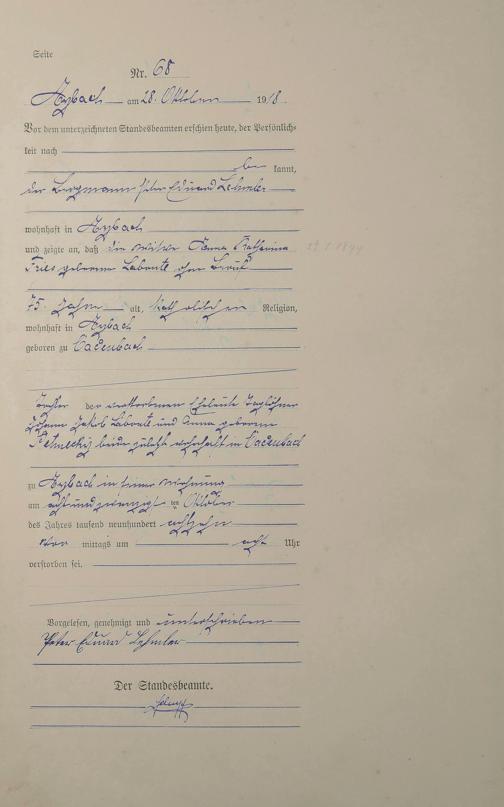 Seite
Nr. 68
Arzbach am 28. Oktober 1918.
Vor dem unterzeichneten Standesbeamten erschien heute, der Persönlich-
keit nach
be kannt,
der Bergmann Peter Eduard Lehmler
wohnhaft in Arzbach
und zeigte an, daß die Witwe Anna Katharina
Fries geborene Labonte ohne Beruf
75 Jahre alt, katholischen Religion,
wohnhaft in Arzbach
geboren zu Cadenbach
Tochter der verstorbenen Eheleute Taglöhner
Johann Jakob Labonte und Anna geborene
beide zuletzt wohnhaft in Cadenbach
zu Arzbach in seiner Wohnung
am achtundzwanzigsten Oktober
des Jahres tausend neunhundert achtzehn
Vor mittags um acht Uhr
verstorben sei.
Vorgelesen, genehmigt und unterschrieben
Peter Eduard Lehmler
Der Standesbeamte.